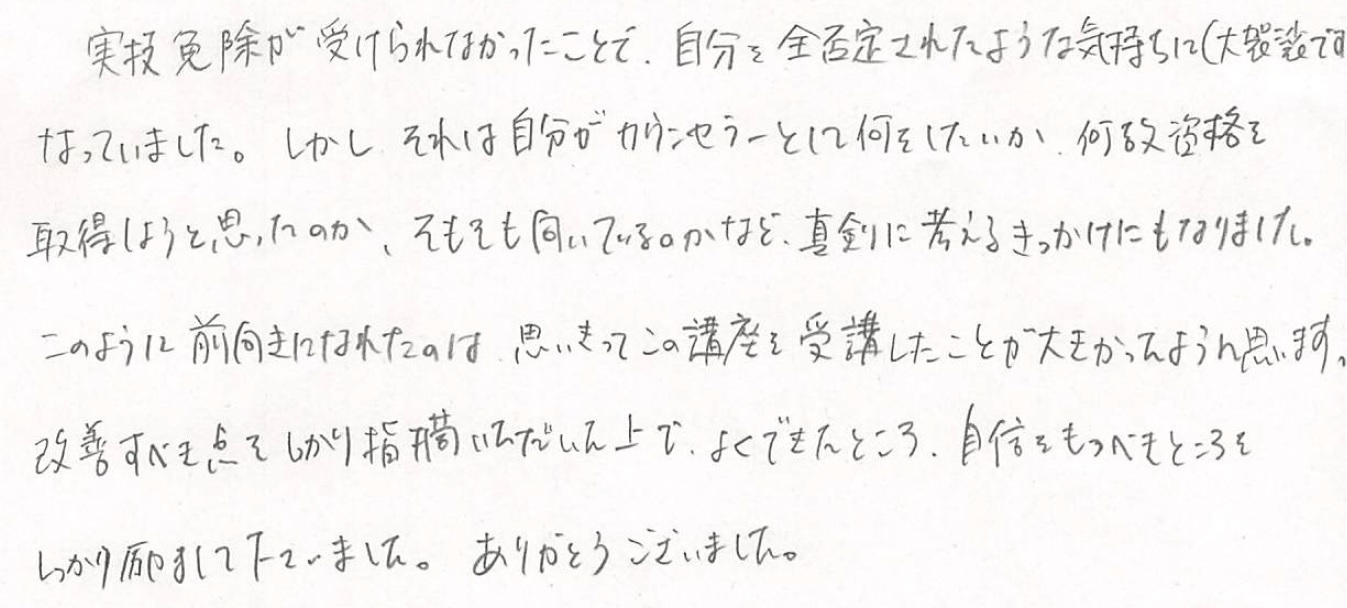 実技免除が受けられなかったことで、自分を全否定されたような気持ちに(大袈裟です
なっていました。しかし それは自分がカウンセラーとして何をしたいか、何故資格を
取得しようと思ったのか、そもそも向いているのかなど、真剣に考えるきっかけにもなりました。
このように前向きになれたのは、思いきってこの講座を受講したことが大きかったように思います。
改善すべき点をしっかり指摘いただいた上で、よくできたところ、自信をもつべきところを
しっかり励まして下さいました。ありがとうございました。